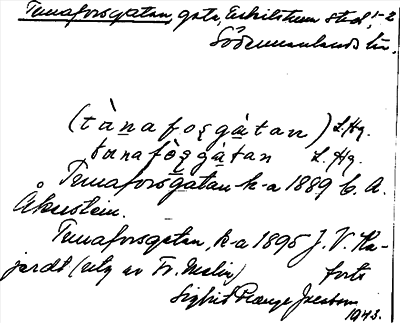 Tunaforsgatan, gata, Eskilstuna stad, 1-2
Södermanlands län.
(tànaforsgàtan) L. Hg.
tunafòrsgàtan L. Hg.
Tunaforsgatan k-a 1889 C. A.
Åkerstein.
Tunaforsgatan, k-a 1895 J. V. Ka-
jerdt (utg av Fr. Melin) forts
Sigfrid
1943.